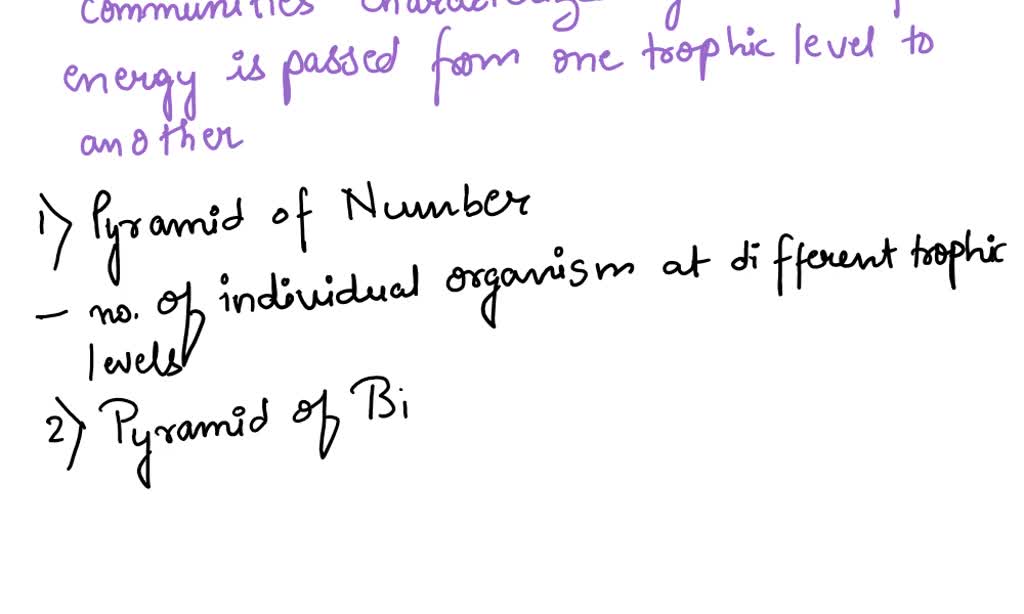 communities
energy is passed from one trophic level to
another
1) Pyramid of Number
- no. of individual organism at different trophic
levels
2) Pyramid of Bi